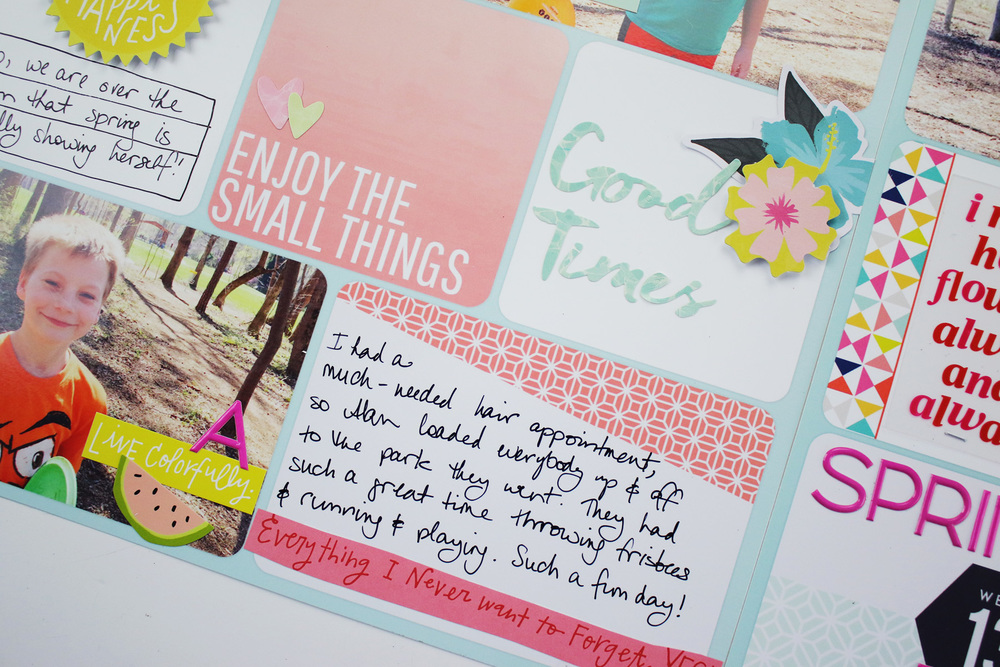 HAPPI
NESS
we are over the
that spring is
showing herself!
ENJOY THE
SMALL THINGS
Good
Times
LIVE COLORFULLY.
A
I had a
much-needed hair appointment,
so Alan loaded everybody up & off
to the park they went. They had
such a great time throwing fristbees
& running & playing. Such a fun day!
Everything I Never want to Forget.
i
flow
alw
and
alwa
SPRI
WE
13